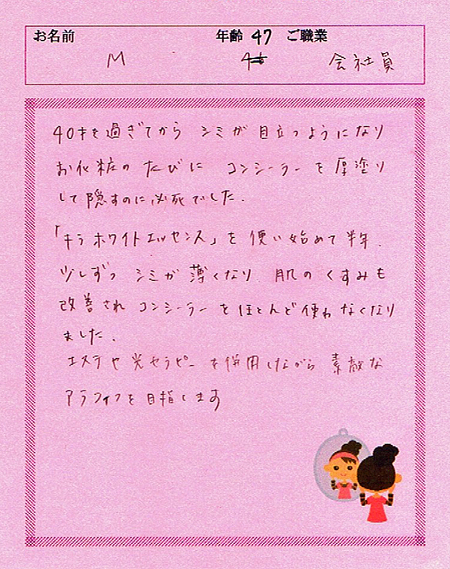 お名前 年齢 47 ご職業
M 才 会社員
40才を過ぎてから シミが 目立つようになり
お化粧の たびに コンシーラーを 厚塗り
して 隠すのに 必死でした.
「キラホワイトエッセンス」を 使い始めて 半年.
少しずつ シミが 薄くなり 肌の くすみも
改善され コンシーラーを ほとんど 使わなくなり
ました.
エステや 光セラピーを 併用しながら 素敵な
アラフィフを 目指します